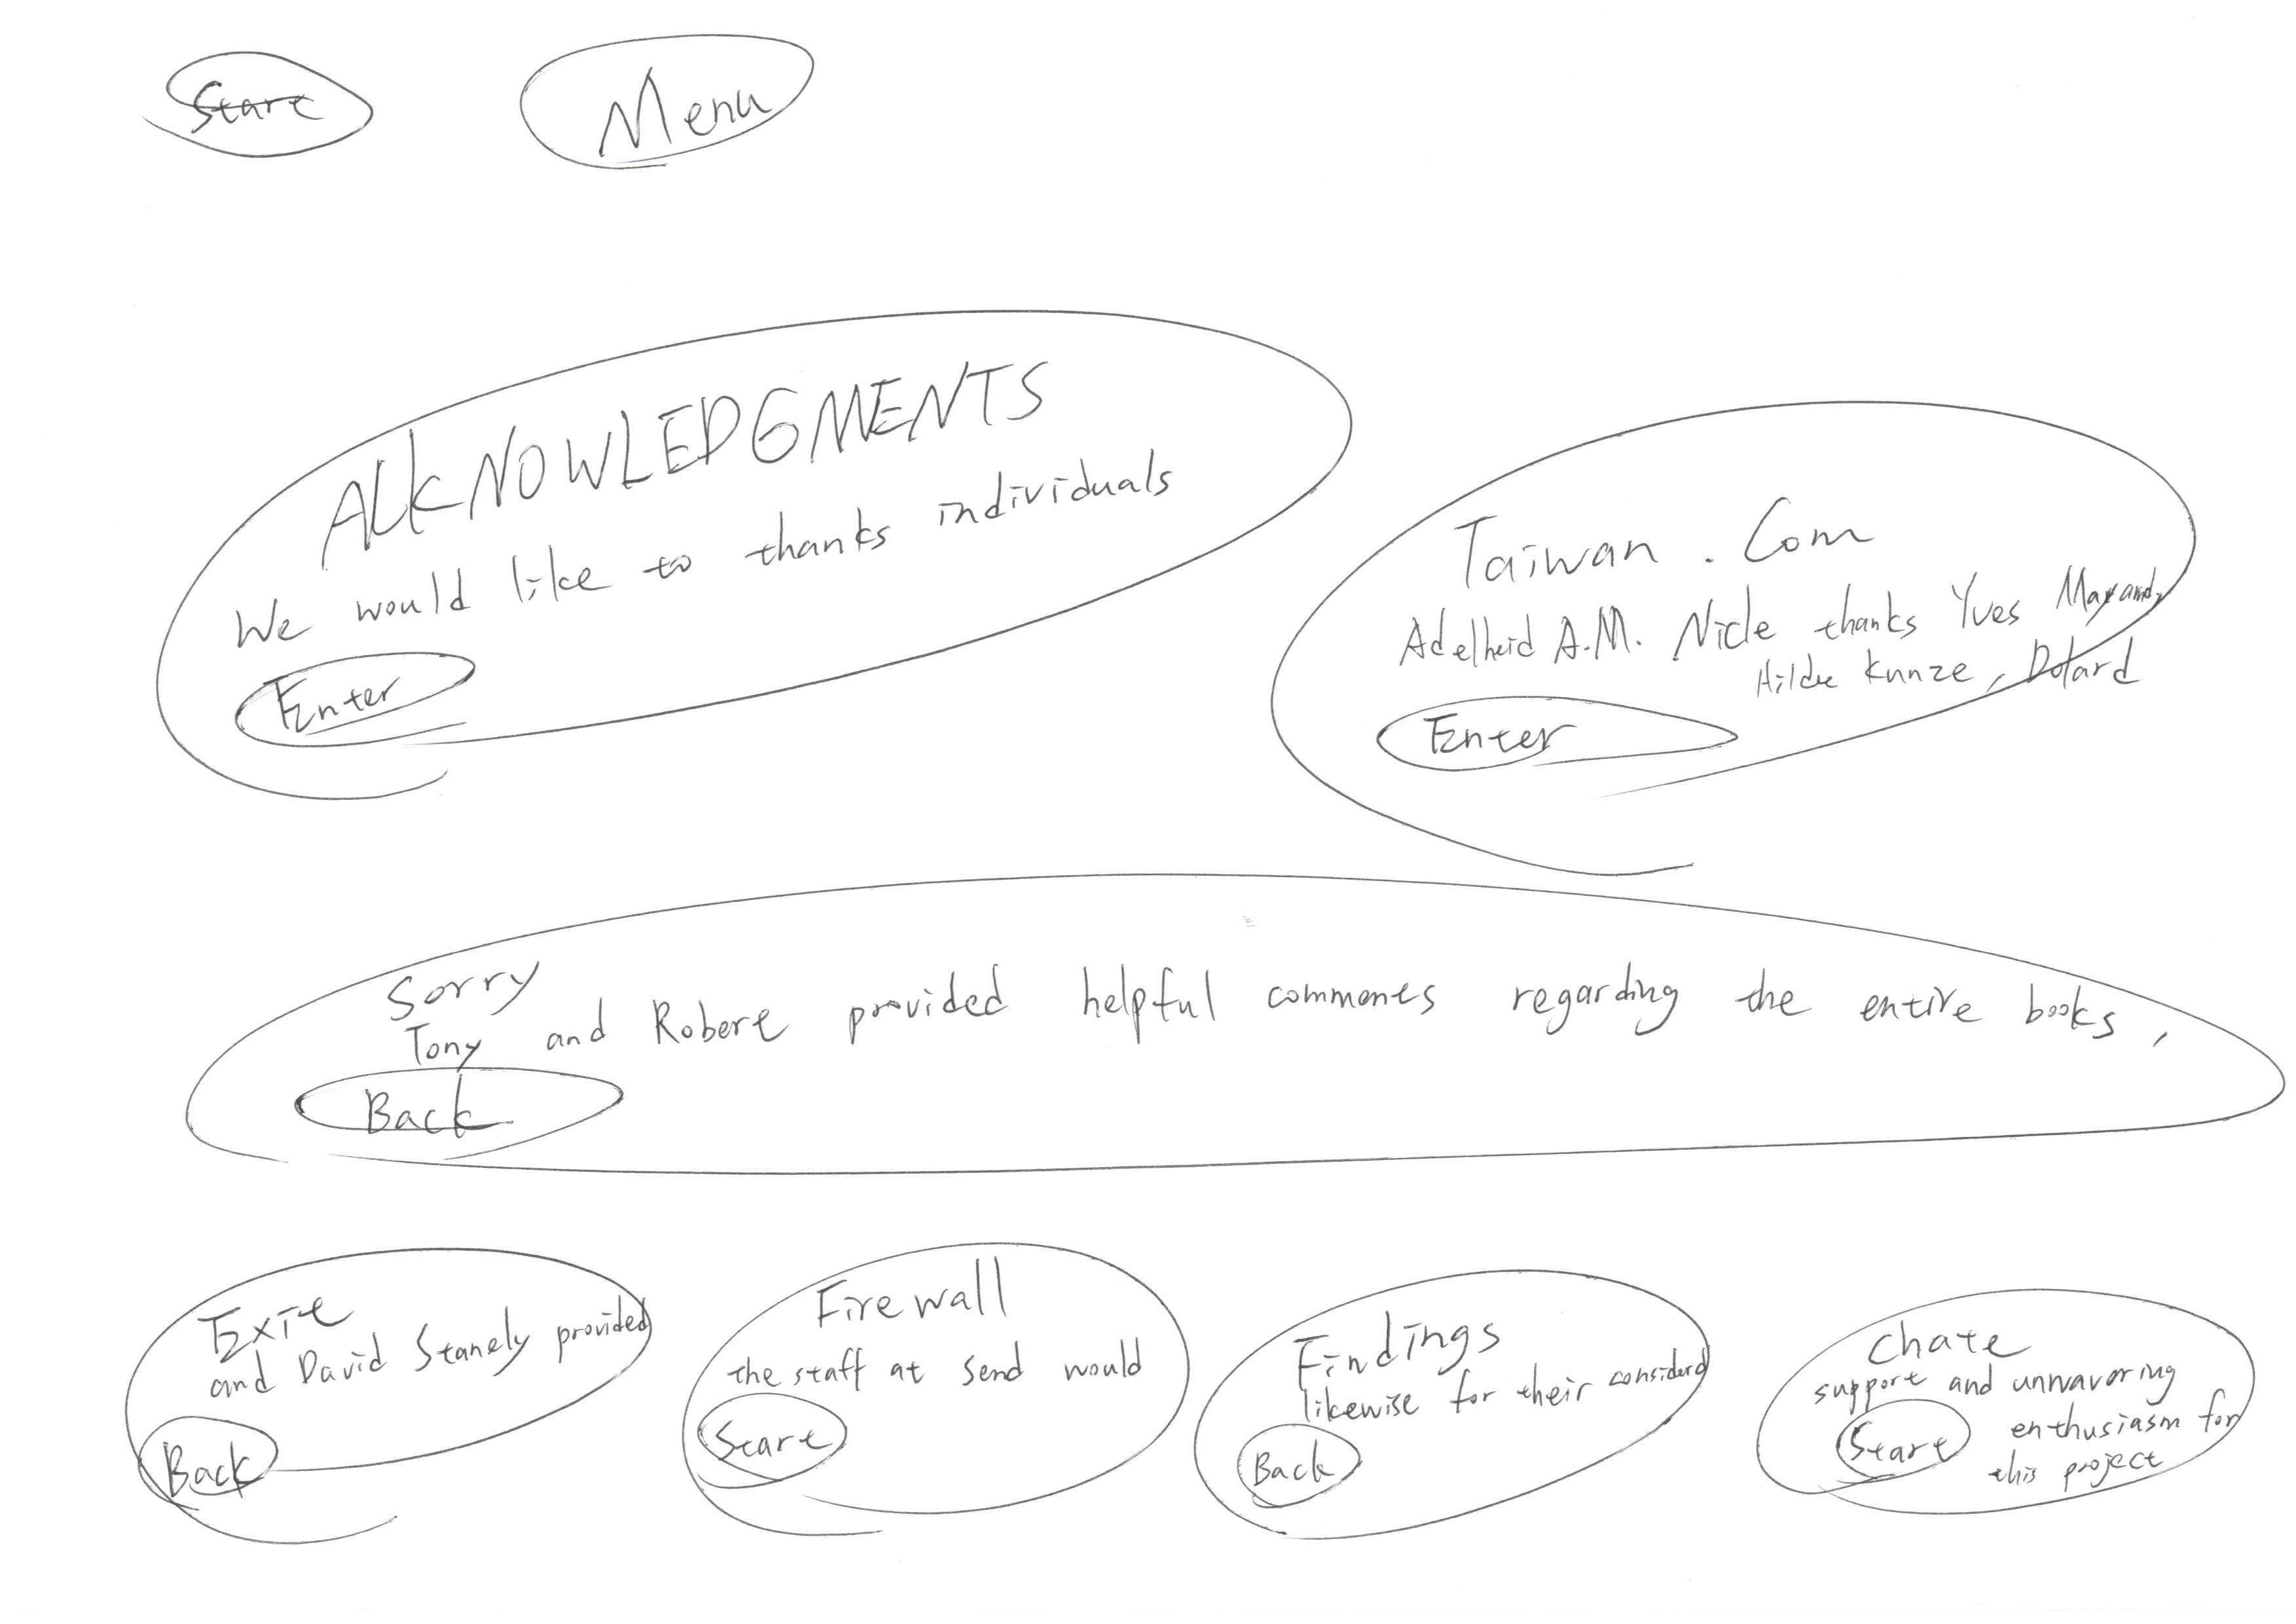 Start
Menu
ALCKNOWLEDGMENTS
We would like to thanks individuals
Enter
Taiwan . Com
Adelheid A.M. Nicle thanks Yves Mayrand,
Hilde Kunze, Dolard
Enter
Sorry
Tony and Robert provided helpful comments regarding the entire books,
Back
Exit
and David Stanely provided
Back
Firewall
the staff at send would
Start
Findings
likewise for their considerd
Back
Chate
support and unnavering
enthusiasm for
Start
this project